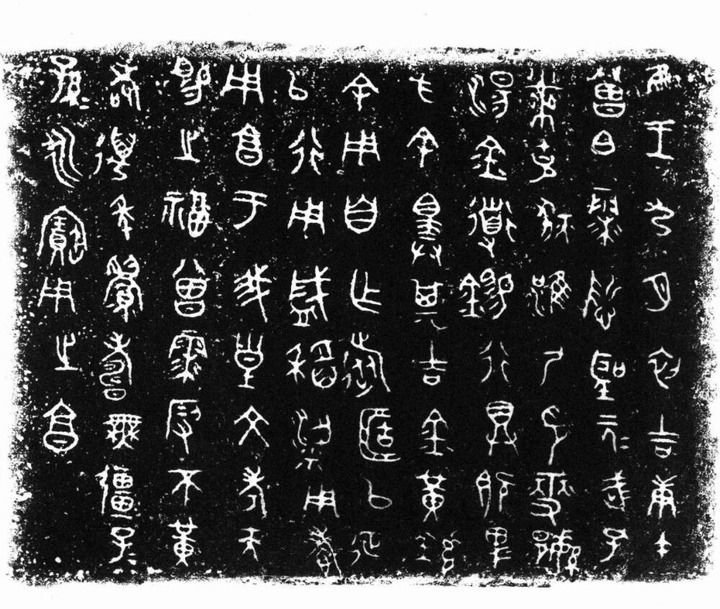 隹王九月初吉庚午
曾白霥哲聖元武孔
黹克狄淮夷印燮繁
湯金道錫行具既卑
方余擇其吉金黃鑪
余用自乍旅匿以征
以行用盛稻粱用孝
用享于我皇文考天
賜之福曾霥叚不黃
耇萬年眉壽無疆子
孫永寶用之享